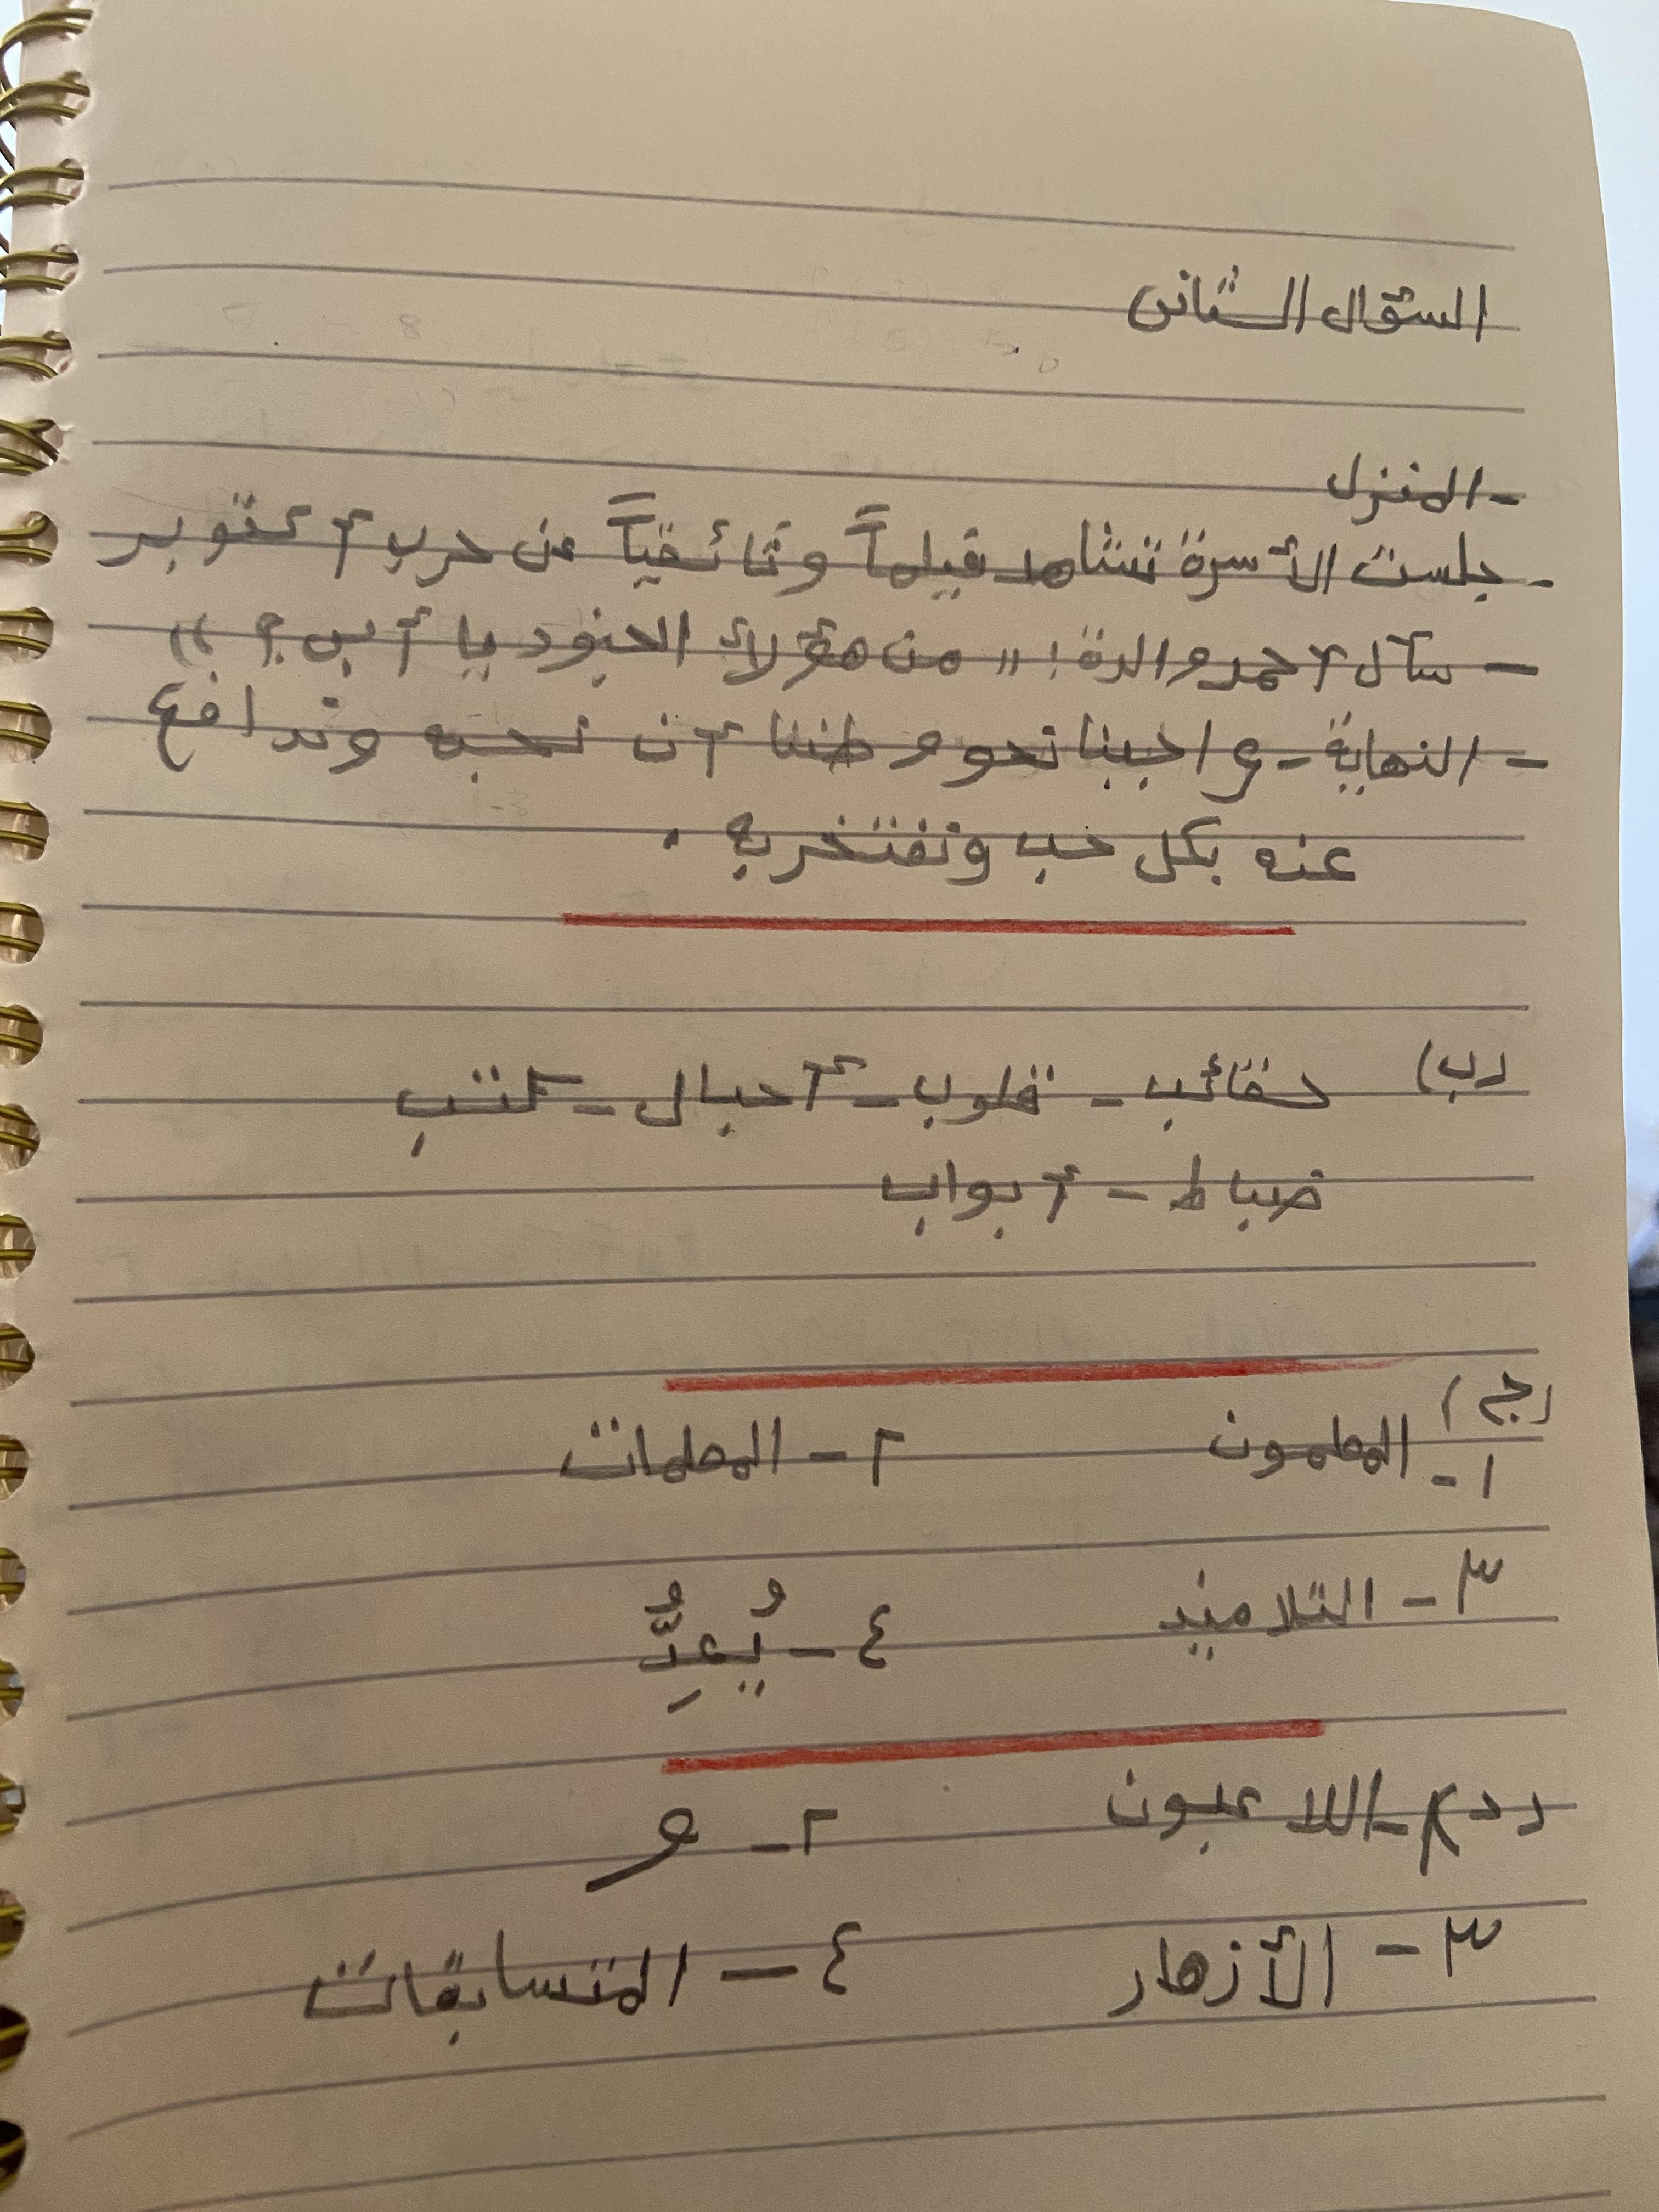 السؤال الثانى
- المنزل
- جلست الأسرة تشاهد فيلماً وثائقياً عن حرب أكتوبر
- سأل أحمد والدة : " من هؤلاء الجنود يا أبى ؟ "
- النهاية - واجبنا نحو وطننا أن نحبه وندافع
عنه بكل حب ونفتخر به .
(ب) حقائب - قلوب - أحبال - كتب
ضباط - أبواب
(ج)
١- المعلمون ٢- المعلمات
٣- التلاميذ ٤- يُعِدُّ
(د) ١- اللاعبون ٢- و
٣- الأزهار ٤- المتسابقات